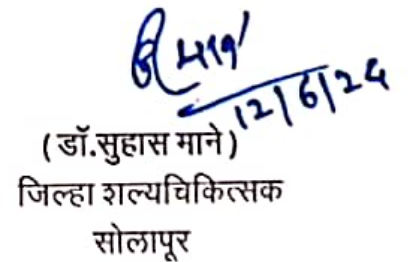 12/6/24
(डॉ.सुहास माने)
जिल्हा शल्यचिकित्सक
सोलापूर